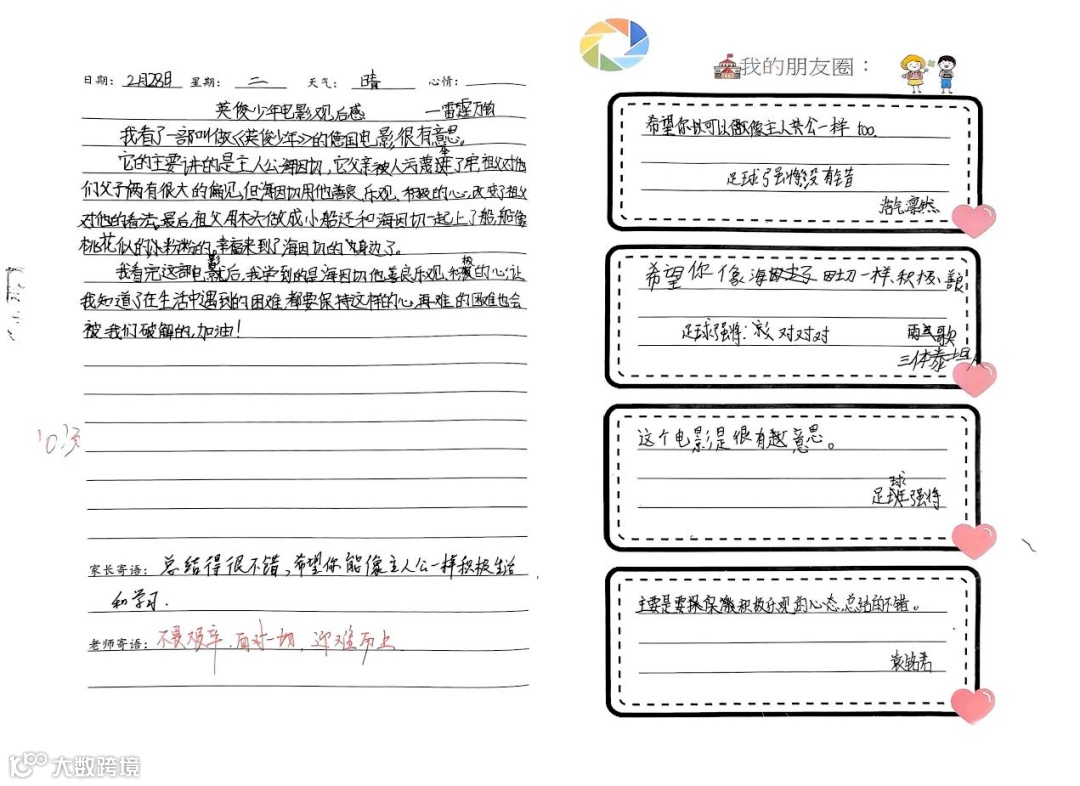 日期：2月28日 星期：二 天气：晴 心情：
英俊少年电影观后感 —雷霆万钧
我看了一部叫做《英俊少年》的德国电影很有意思。
它的主要讲的是主人公海因切，它父亲被人污蔑进了牢，祖父对他
们父子俩有很大的偏见，但海因切用他善良、乐观、积极的心，改变了祖父
对他的看法，最后祖父用木头做成小船还和海因切一起上了船，船像
桃花似的，幸福来到了海因切的身边了。
我看完这部电影后，我学到的是海因切他善良乐观、积极的心，让
我知道了在生活中遇到的困难，都要保持这样的心，再难的困难也会
被我们破解的，加油！
10次
家长寄语：总结得很不错，希望你能像主人公一样积极生活
和学习.
老师寄语：不畏艰辛，面对一切，迎难而上
我的朋友圈：
希望你以可以像主人共公一样too.
足球了强将没有错
浩气凛然
希望你像海因切一样积极、善良
足球强将：对对对
三体
这个电影是很有趣意思。
足球强将
主要是要保积极乐观的心态，总结的不错。
袁铭君
大数跨境